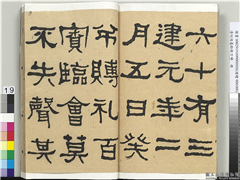 六十有三
建元年二
月五日癸
賵礼百
臨會莫
不失聲其
19